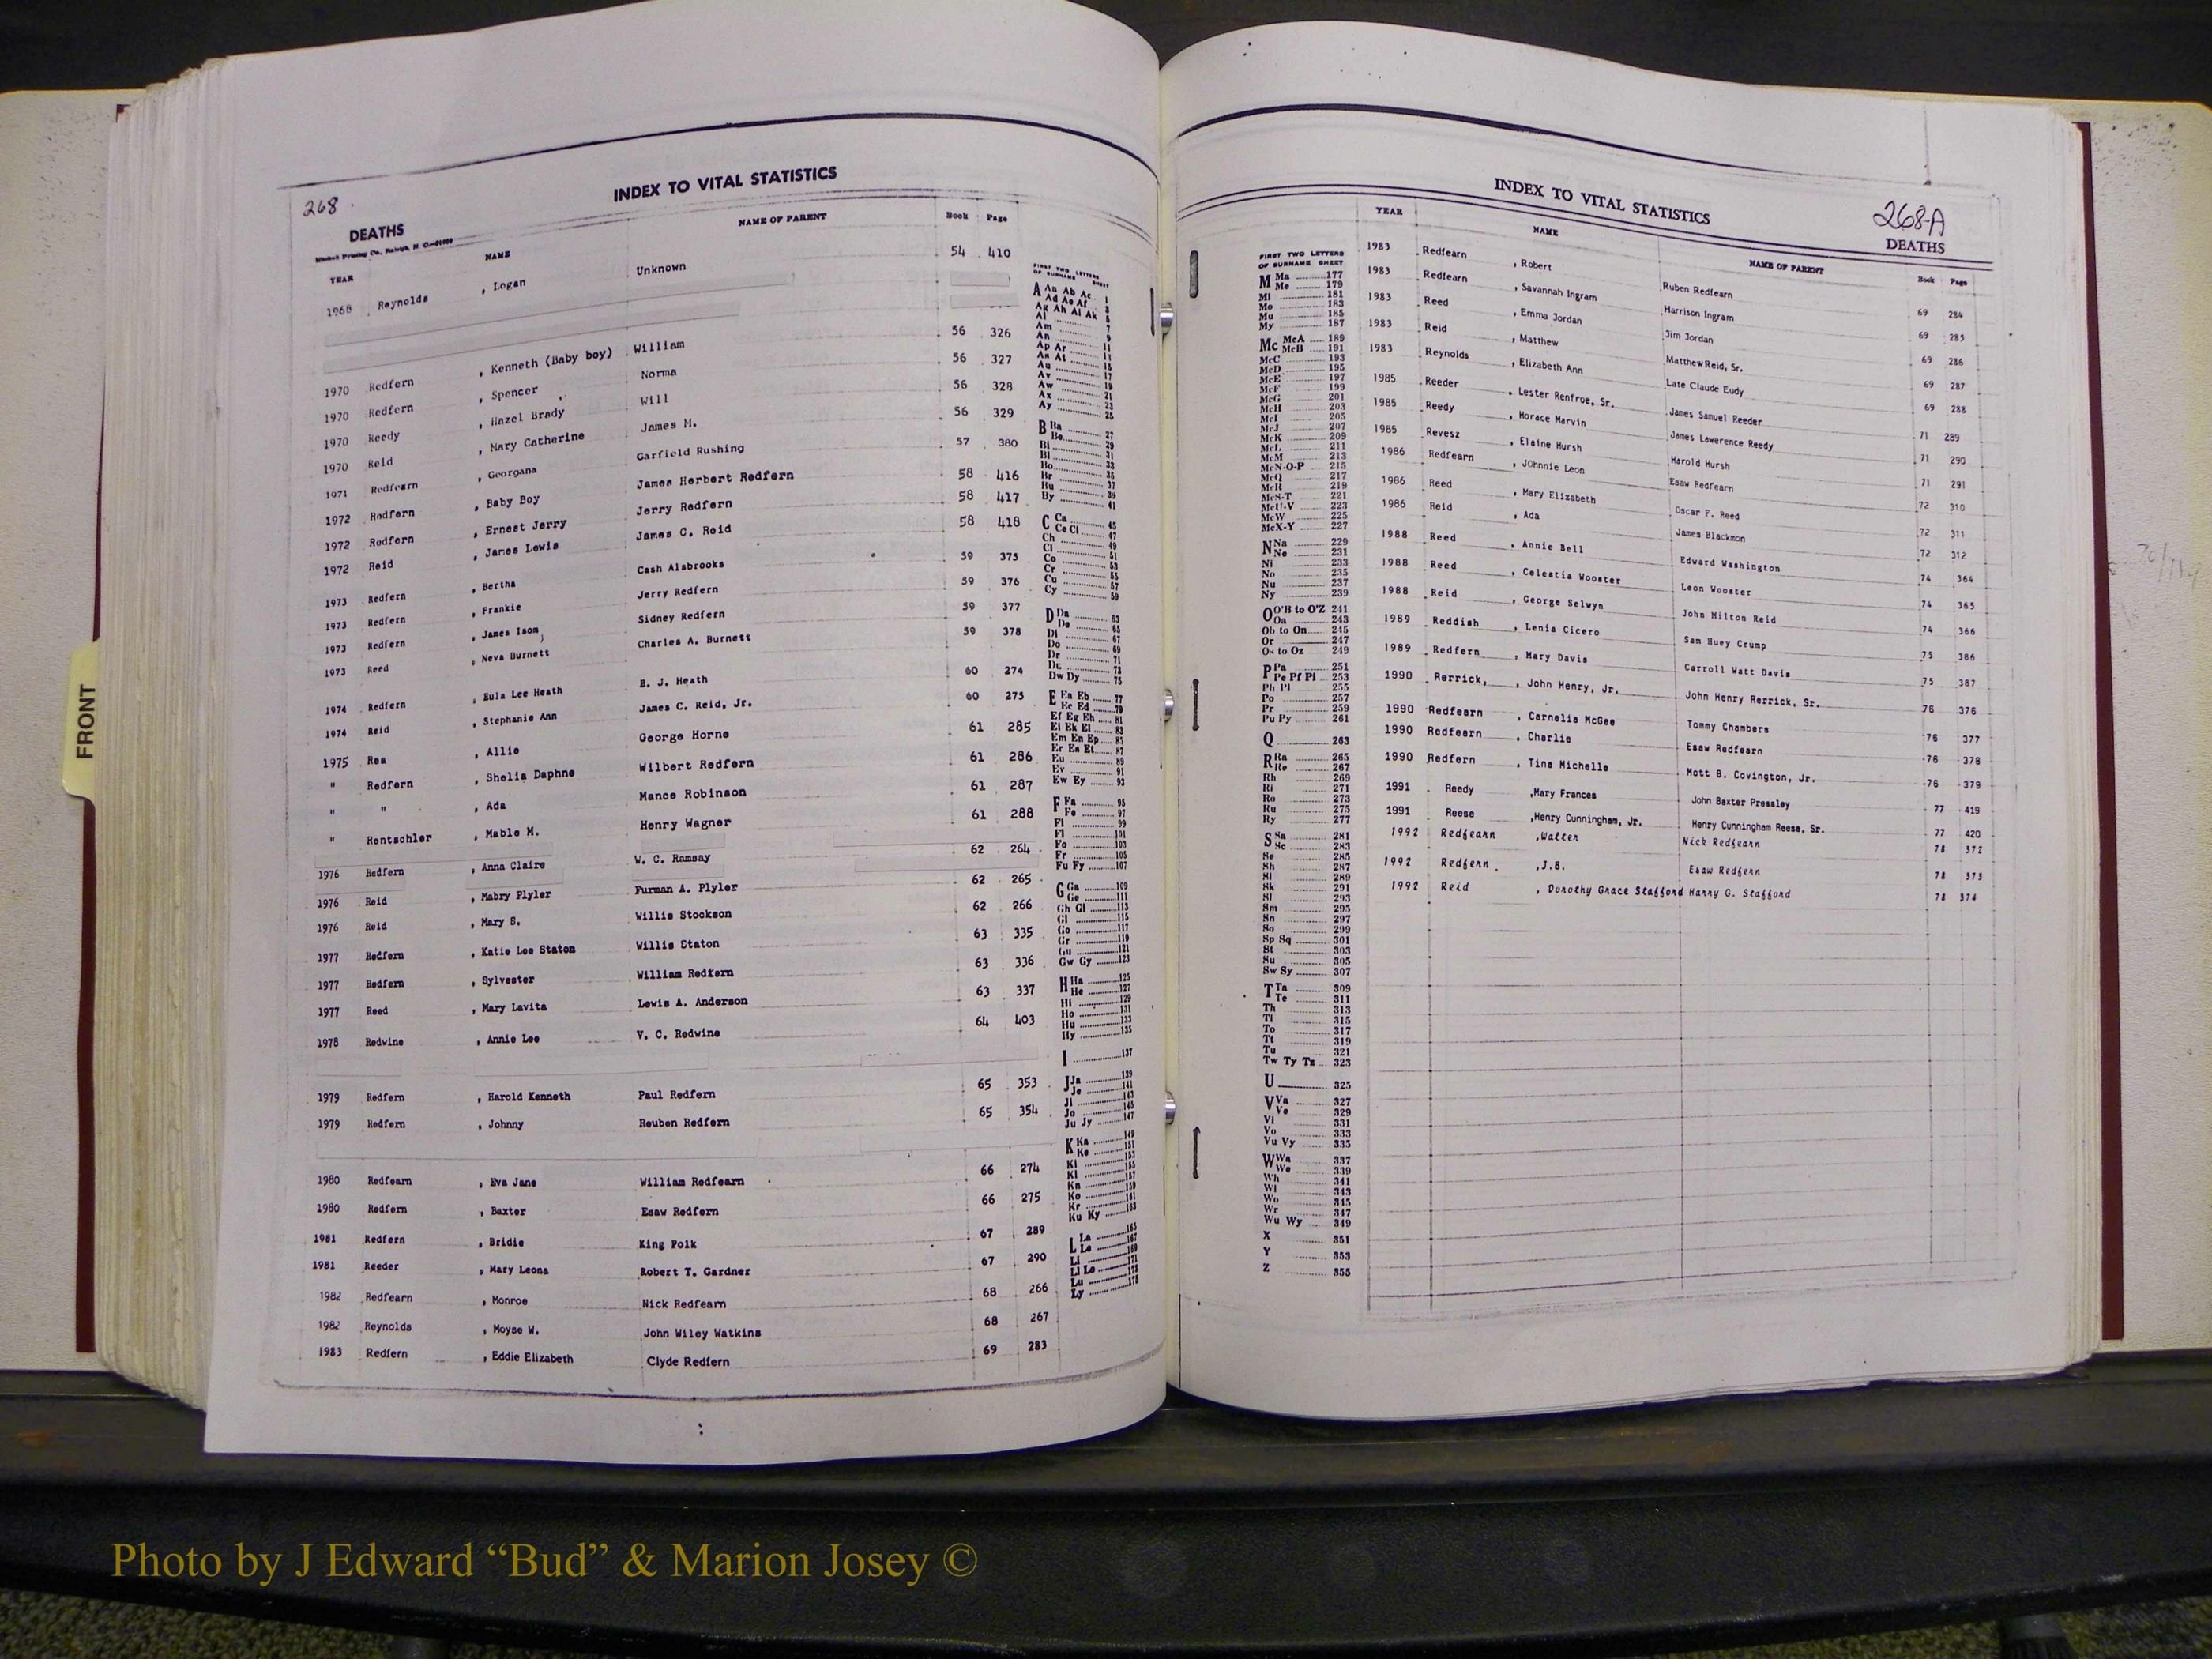 268
INDEX TO VITAL STATISTICS
DEATHS
Mitchell Printing Co., Raleigh, N. C.
YEAR NAME NAME OF PARENT Book Page
1968 Reynolds , Logan Unknown 54 410
1970 Redfern , Kenneth (Baby boy) William 56 326
1970 Redfern , Spencer Norma 56 327
1970 Reedy , Hazel Brady Will 56 328
1970 Reid , Mary Catherine James M. 56 329
1971 Redfearn , Georgana Garfield Rushing 57 380
1972 Redfern , Baby Boy James Herbert Redfern 58 416
1972 Redfern , Ernest Jerry Jerry Redfern 58 417
1972 Reid , James Lewis James C. Reid 58 418
1973 Redfern , Bertha Cash Alsbrooks 59 375
1973 Redfern , Frankie Jerry Redfern 59 376
1973 Redfern , James Isom Sidney Redfern 59 377
1973 Reed , Neva Burnett Charles A. Burnett 59 378
1974 Redfern , Eula Lee Heath E. J. Heath 60 274
1974 Reid , Stephanie Ann James C. Reid, Jr. 60 275
1975 Rea , Allie George Horne 61 285
" Redfern , Shelia Daphne Wilbert Redfern 61 286
" " , Ada Mance Robinson 61 287
" Rentschler , Mable M. Henry Wagner 61 288
1976 Redfern , Anna Claire W. C. Ramsay 62 264
1976 Reid , Mabry Plyler Furman A. Plyler 62 265
1976 Reid , Mary S. Willis Stookson 62 266
1977 Redfern , Katie Lee Staton Willis Staton 63 335
1977 Redfern , Sylvester William Redfern 63 336
1977 Reed , Mary Lavita Lewis A. Anderson 63 337
1978 Redwine , Annie Lee V. C. Redwine 64 403
1979 Redfern , Harold Kenneth Paul Redfern 65 353
1979 Redfern , Johnny Reuben Redfern 65 354
1980 Redfearn , Eva Jane William Redfearn 66 274
1980 Redfern , Baxter Esaw Redfern 66 275
1981 Redfern , Bridie King Polk 67 289
1981 Reeder , Mary Leona Robert T. Gardner 67 290
1982 Redfearn , Monroe Nick Redfearn 68 266
1982 Reynolds , Moyse W. John Wiley Watkins 68 267
1983 Redfern , Eddie Elizabeth Clyde Redfern 69 283
FIRST TWO LETTERS
OF SURNAME SHEET
A Aa Ab Ac 1
Ad Ae Af 3
Ag Ah Ai Ak 5
Al 7
Am 9
An
Ap Ar 11
As At 13
Au 15
Av 17
Aw 19
Ax 21
Ay
B Ba 27
Be 29
Bi 31
Bl 33
Bo 35
Br 37
Bu 39
By 41
C Ca 45
Ce Ci 47
Ch 49
Cl 51
Co 53
Cr 55
Cu 57
Cy 59
D Da 63
De 65
Di 67
Do 69
Dr 71
Du 73
Dw Dy 75
E Ea Eb 77
Ec Ed 79
Ef Eg Eh 81
Ei Ek El 83
Em En Ep 85
Er Es Et 87
Eu 89
Ev 91
Ew Ey 93
F Fa 95
Fe 97
Fi 99
Fl 101
Fo 103
Fr 105
Fu Fy 107
G Ga 109
Ge 111
Gh Gi 113
Gl 115
Go 117
Gr 119
Gu 121
Gw Gy 123
H Ha 125
He 127
Hi 129
Ho 131
Hu 133
Hy 135
I 137
J Ja 139
Je 141
Ji 143
Jo 145
Ju Jy 147
K Ka 149
Ke 151
Ki 153
Kl 155
Kn 157
Ko 159
Kr 161
Ku Ky 163
L La 165
Le 167
Li 169
Ll Lo 171
Lu 173
Ly 175
INDEX TO VITAL STATISTICS
268-A
DEATHS
YEAR NAME NAME OF PARENT Book Page
1983 Redfearn , Robert Ruben Redfearn 69 284
1983 Redfearn , Savannah Ingram Harrison Ingram 69 285
1983 Reed , Emma Jordan Jim Jordan 69 286
1983 Reid , Matthew Matthew Reid, Sr. 69 287
1983 Reynolds , Elizabeth Ann Late Claude Eudy 69 288
1985 Reeder , Lester Renfroe, Sr. James Samuel Reeder 71 289
1985 Reedy , Horace Marvin James Lawerence Reedy 71 290
1985 Revesz , Elaine Hursh Harold Hursh 71 291
1986 Redfearn , JOhnnie Leon Esaw Redfearn 72 310
1986 Reed , Mary Elizabeth Oscar F. Reed 72 311
1986 Reid , Ada James Blackmon 72 312
1988 Reed , Annie Bell Edward Washington 74 364
1988 Reed , Celestia Wooster Leon Wooster 74 365
1988 Reid , George Selwyn John Milton Reid 74 366
1989 Reddish , Lenia Cicero Sam Huey Crump 75 386
1989 Redfern , Mary Davis Carroll Watt Davis 75 387
1990 Rerrick, , John Henry, Jr. John Henry Rerrick, Sr. 76 376
1990 Redfearn , Carnelia McGee Tommy Chambers 76 377
1990 Redfearn , Charlie Esaw Redfearn 76 378
1990 Redfern , Tina Michelle Mott B. Covington, Jr. 76 379
1991 Reedy ,Mary Frances John Baxter Pressley 77 419
1991 Reese ,Henry Cunningham, Jr. Henry Cunningham Reese, Sr. 77 420
1992 Redfearn ,Walter Nick Redfearn 78 372
1992 Redfern ,J.B. Esaw Redfern 78 373
1992 Reid , Dorothy Grace Stafford Harry G. Stafford 78 374
FIRST TWO LETTERS
OF SURNAME SHEET
M Ma 177
Me 179
Mi 181
Mo 183
Mu 185
My 187
Mc McA 189
McB 191
McC 193
McD 195
McE 197
McF 199
McG 201
McH 203
McI 205
McJ 207
McK 209
McL 211
McM 213
McN-O-P 215
McQ 217
McR 219
McS-T 221
McU-V 223
McW 225
McX-Y 227
N Na 229
Ne 231
Ni 233
No 235
Nu 237
Ny 239
O O'B to O'Z 241
Oa 243
Ob to On 245
Or 247
Os to Oz 249
P Pa 251
Pe Pf Pi 253
Ph Pl 255
Po 257
Pr 259
Pu Py 261
Q 263
R Ra 265
Re 267
Rh 269
Ri 271
Ro 273
Ru 275
Ry 277
S Sa 281
Sc 283
Se 285
Sh 287
Si 289
Sk 291
Sl 293
Sm 295
Sn 297
So 299
Sp Sq 301
St 303
Su 305
Sw Sy 307
T Ta 309
Te 311
Th 313
Ti 315
To 317
Tt 319
Tu 321
Tw Ty Tz 323
U 325
V Va 327
Ve 329
Vi 331
Vo 333
Vu Vy 335
W Wa 337
We 339
Wh 341
Wi 343
Wo 345
Wr 347
Wu Wy 349
X 351
Y 353
Z 355
FRONT
Photo by J Edward “Bud” & Marion Josey ©